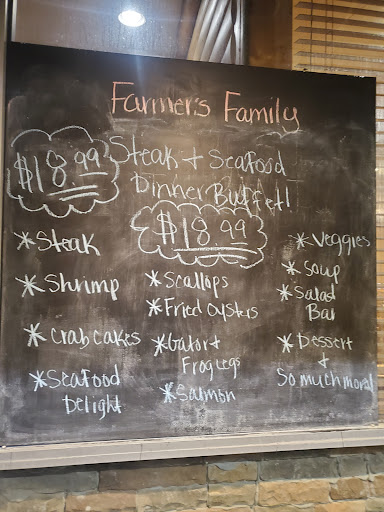 Farmers Family
$18.99 Steak + Seafood
Dinner Buffet!
$18.99
*Steak
*Shrimp
*Crab cakes
*Seafood
Delight
*Scallops
*Fried Oysters
*Gator +
Frog Legs
*Salmon
*Veggies
*Soup
*Salad
Bar
*Dessert
+
So much more!